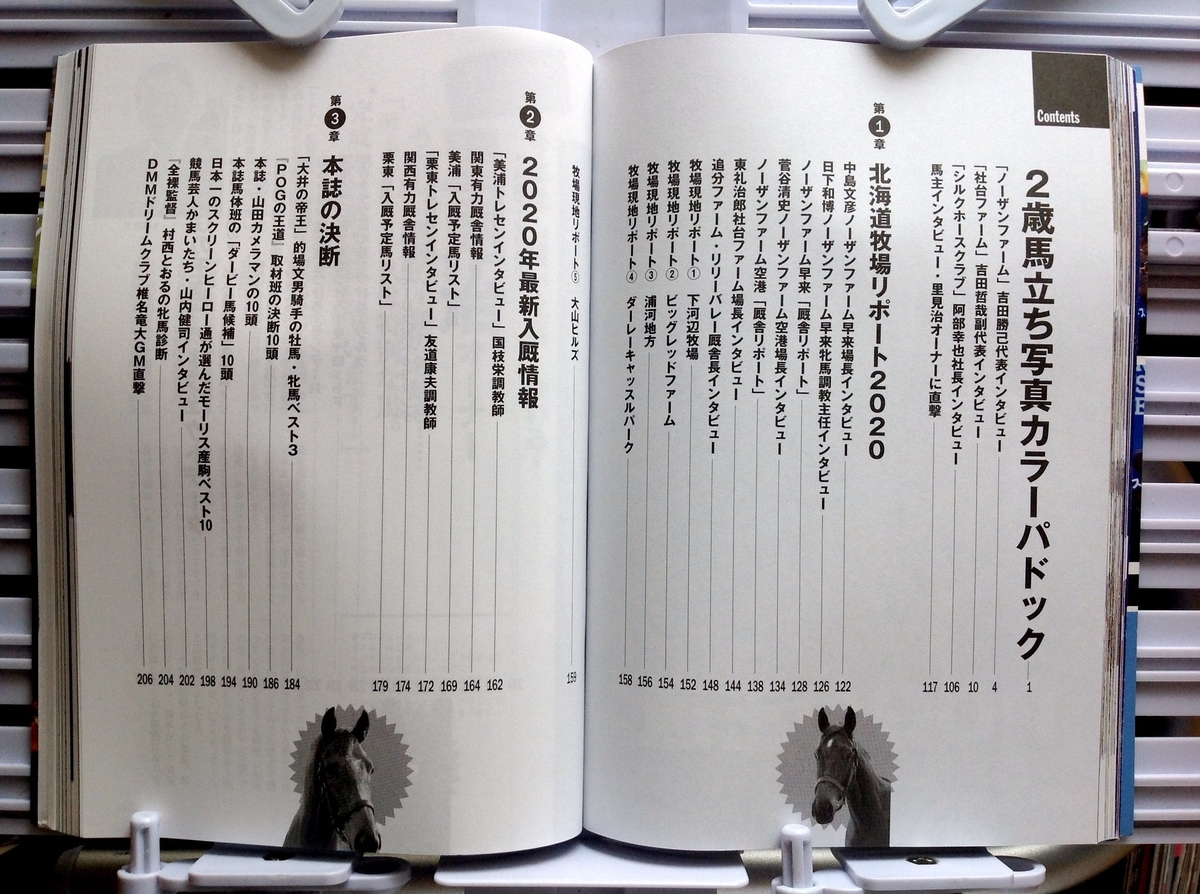 Contents
2歳馬立ち写真カラーパドック 1
「ノーザンファーム」吉田勝己代表インタビュー 4
「社台ファーム」吉田哲哉副代表インタビュー 10
「シルクホースクラブ」阿部幸也社長インタビュー 106
馬主インタビュー・里見治オーナーに直撃 117
第1章 北海道牧場リポート2020
中島文彦ノーザンファーム早来場長インタビュー 122
日下和博ノーザンファーム早来牝馬調教主任インタビュー 126
ノーザンファーム早来「厩舎リポート」 128
菅谷清史ノーザンファーム空港場長インタビュー 134
ノーザンファーム空港「厩舎リポート」 138
東礼治郎社台ファーム場長インタビュー 144
追分ファーム・リリーバレー厩舎長インタビュー 148
牧場現地リポート① 下河辺牧場 152
牧場現地リポート② ビッグレッドファーム 154
牧場現地リポート③ 浦河地方 156
牧場現地リポート④ ダーレーキャッスルパーク 158
牧場現地リポート⑤ 大山ヒルズ 159
第2章 2020年最新入厩情報
「美浦トレセンインタビュー」国枝栄調教師 162
関東有力厩舎情報 164
美浦「入厩予定馬リスト」 169
「栗東トレセンインタビュー」友道康夫調教師 172
関西有力厩舎情報 174
栗東「入厩予定馬リスト」 179
第3章 本誌の決断
「大井の帝王」的場文男騎手の牡馬・牝馬ベスト3 184
『POGの王道』取材班の決断10頭 186
本誌・山田カメラマンの10頭 190
本誌馬体班の「ダービー馬候補」10頭 194
日本一のスクリーンヒーロー通が選んだモーリス産駒ベスト10 198
競馬芸人かまいたち・山内健司インタビュー 202
『全裸監督』村西とおるの牝馬診断 204
DMMドリームクラブ椎名竜大GM直撃 206